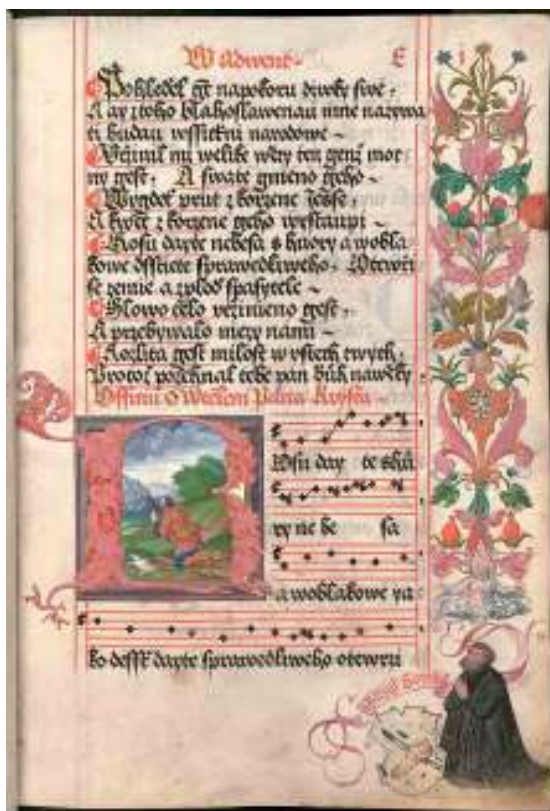 W Adwent E i
Pohleděl gt napokoru děwky swé
A ay z toho blahoslawenau mne nazywa
ti budau wssickni narodowe
Včinil my welike wěcy ten genž moc
ny gest A swate gmeno geho
Wygdeť prut z kořzene Jesse
A kwět z kořzene geho wystaupi
Rosu dayte nebesa s huory a wobla
kowe dsstiete sprawedliweho Otewři
se zemie a zploď spasytele
Slowo tělo včinieno gest
A przebywalo mezy nami
Rozlita gest milost w vstech twych
Protož požehnal tebe pan Bůh nawěky
Officiu O Wtěleni Pana Krysta
Rosu day te shů
ry ne be sa
a woblakowe ya
ko dessť dayte sprawedliweho otewrzi